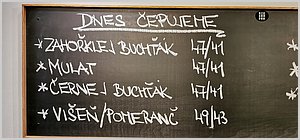 DNES ČEPUJEME
*ZAHOŘKLEJ BUCHŤÁK 47/41
*MULAT 47/41
*ČERNEJ BUCHŤÁK 47/41
*VIŠEŇ/POMERANČ 49/43